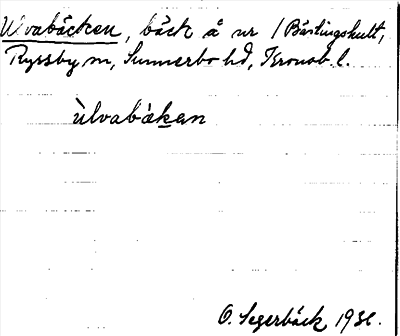 Ulvabäcken, bäck å nr 1 Bästingshult,
Ryssby sn, Sunnerbo hd, Kronob. l.
ùlvabákan
O. Segerbäck 1931.